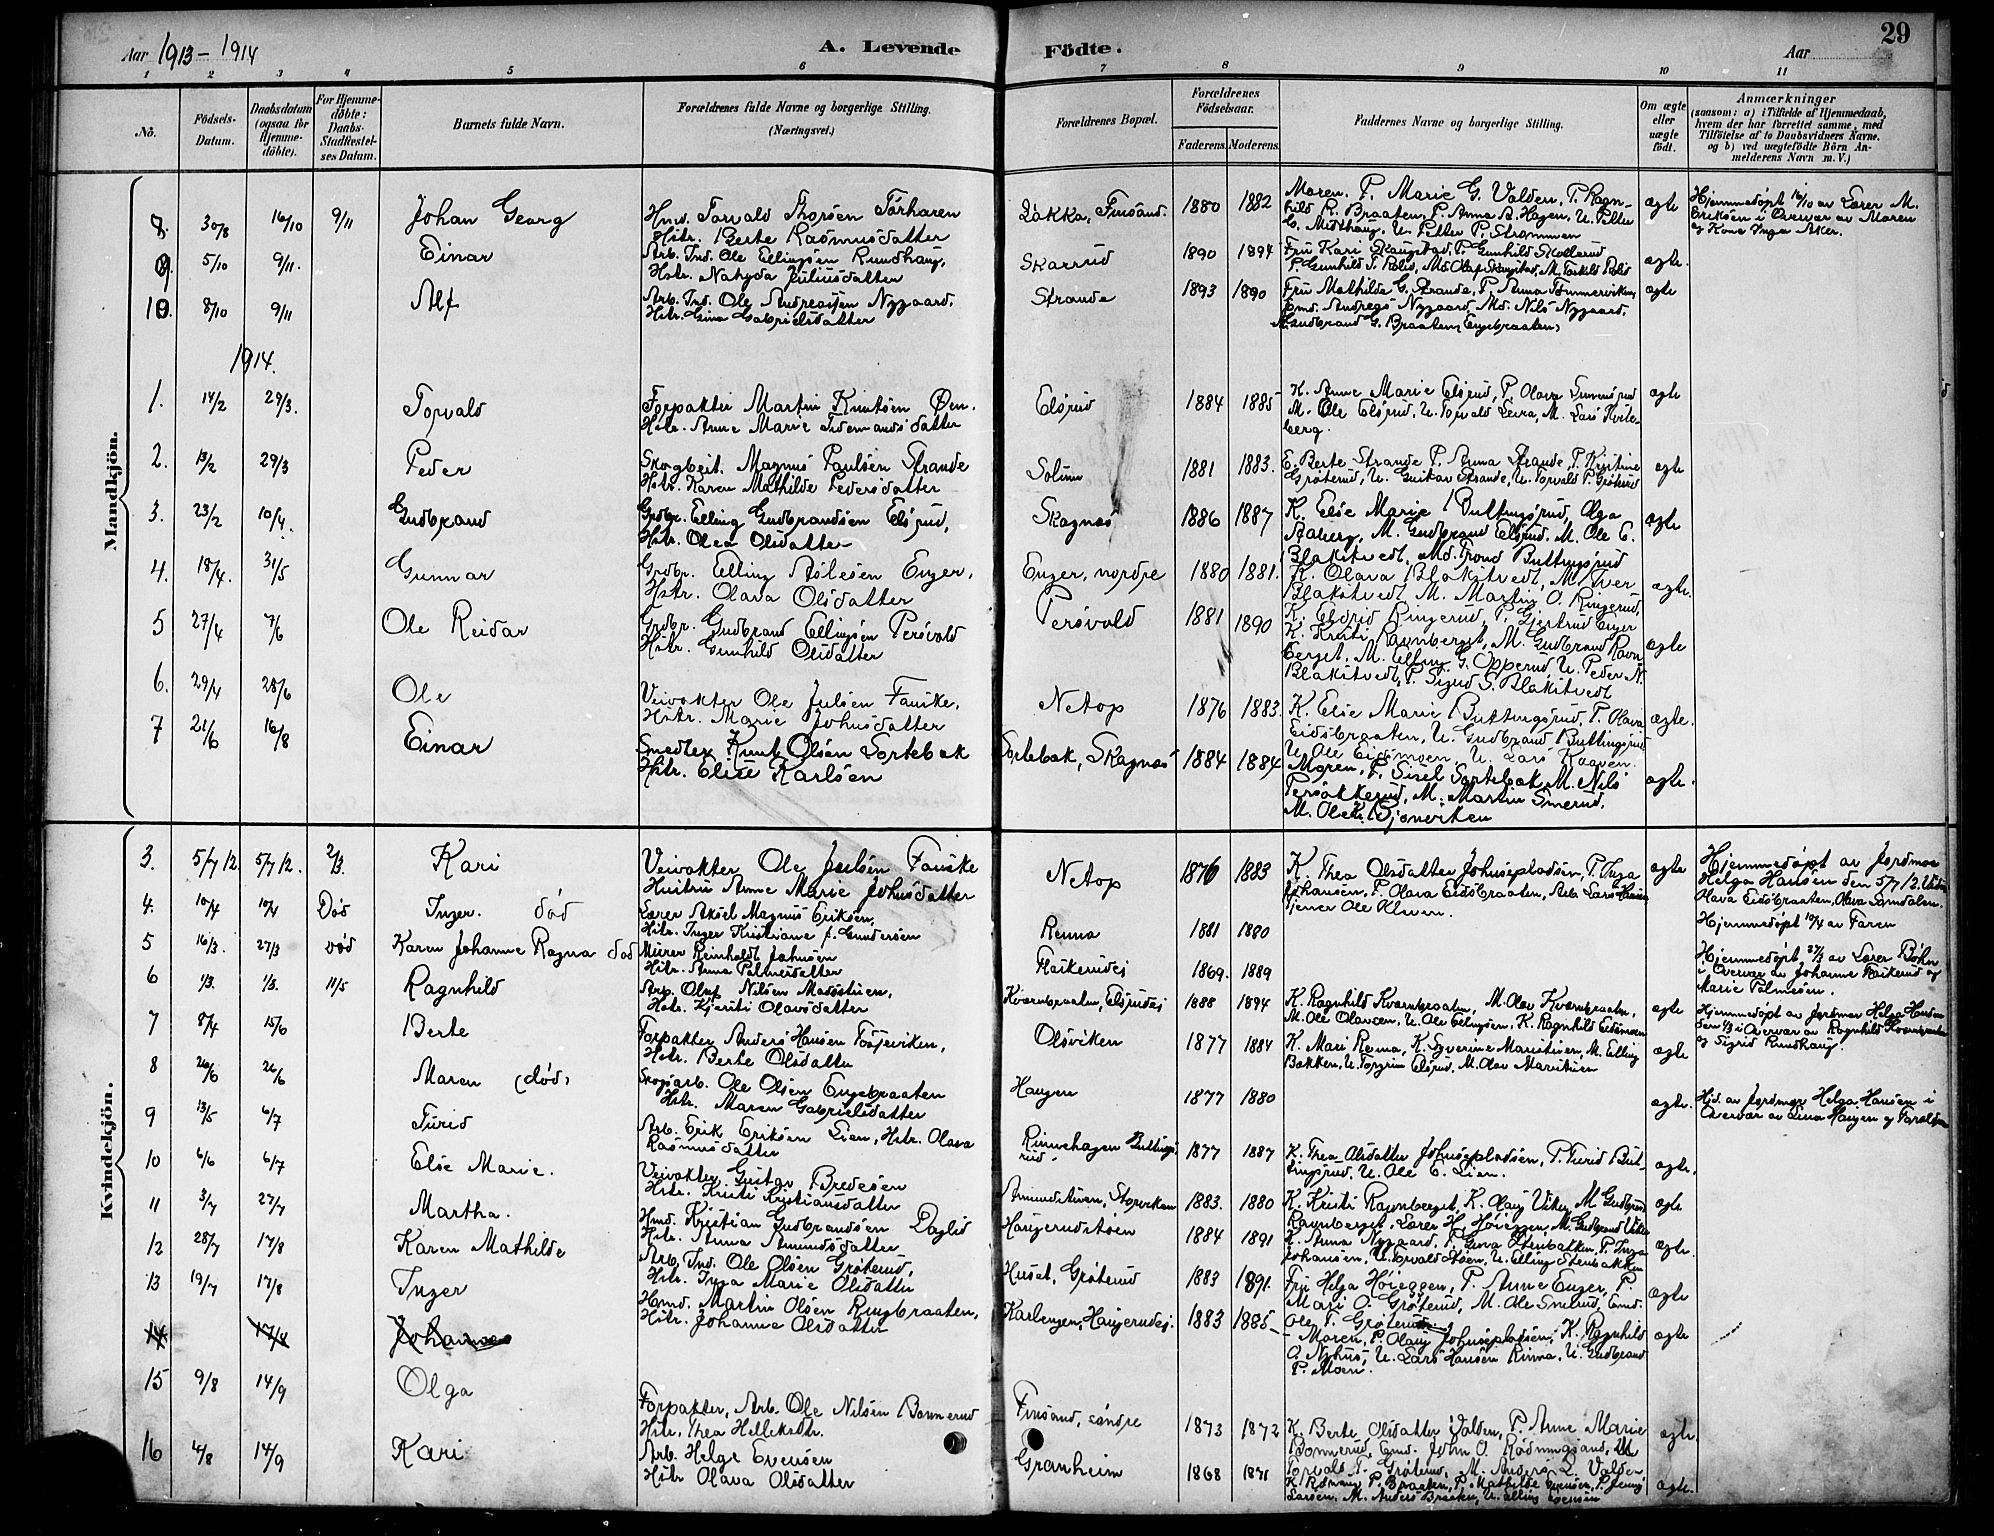 Aar 1913-1914
A. Levende Födte.
Aar
29
1 2 3 4 5 6 7 8 9 10 11
No.
Fødsels-Datum.
Daabsdatum (ogsaa for Hjemme-døbte).
For Hjemme-døbte: Daabs-Stadfæstel-ses Datum.
Barnets fulde Navn.
Forældrenes fulde Navne og borgerlige Stilling. (Næringsvei.)
Forældrenes Bopæl.
Forældrenes Fødselsaar.
Faderens. Moderens.
Faddernes Navne og borgerlige Stilling.
Om ægte eller uægte født.
Anmærkninger
(saasom: a) i Tilfælde af Hjemmedaab, hvem der har forrettet samme, med Tilføielse af to Daabsvidners Navne. og b) ved uægtefødte Børn An-melderens Navn m. V.)
Mandkjön.
8. 30/8 16/10 9/11 Johan Georg
Hmd. Torvald Thorsen
Hstr. Berte Rasmusdatter
Finsand. 1880 1882
Maren, P. Marie G. Valden, P. Ragn-
hild R. Braaten, P. Anna A. Hagen, U. Petter
U. Petter P. Strømmen
ægte
Hjemmedøpt 16/10 av Lærer M.
Eriksen i Overvær av Maren
og Kone Inga Aker.
9 5/10 9/11. Einar
Arb. Ind. Ole Ellingsen Rundhaug,
Hstr. Juliusdatter
Skarrud 1890 1894
Fru Kari Skaugstad, P. Gunhild
P. Gunhild T. Rolid, Md. Olaf Skaugstad, M. Rolid
ægte.
10. 8/10 9/11 Alf
Arb. Ind. Ole Andreassen Nygaard,
Hstr. Gina Gabrielsdatter
Strande 1893 1890
Fru Mathilde G. Strande, P. Anna Tømmerviken,
Gmd. Andreas Nygaard, Md. Nils Nygaard,
M. Gudbrand G. Braaten, Engebraaten,
ægte
1914.
1. 14/2 29/3. Torvald
Forpakter Martin Knutsen Øen.
Hstr. Anne Marie Tidemandsdatter
Elsrud 1884 1885
K. Anne Marie Elsrud, P. Olava
M. Ole Elsrud, U. Torvald Leira, M. Lars Hvite-
berg.
ægte
2. 13/2 29/3 Peder
Skogbeit. Magnus Paulsen Strande
Hstr. Karen Mathilde Pedersdatter
Solum 1881 1883.
E. Berte Strande P. Anna Strande, P. Kristine
Grøterud, U. Gustav Strande, U. Torvald P. Grøterud
ægte
3. 23/2 10/4. Gudbrand
Grdbr. Elling Gudbrandsen Elsrud,
Hstr. Olea Olsdatter
Skagnæs 1886 1887
K. Else Marie Buttingsrud, Olga
Aaberg, M. Gudbrand Elsrud. M. Ole E.
Blakstvedt, Md. Trond Buttingsrud
ægte
4. 18/4. 31/5 Gunnar
Grdbr. Elling Aslesen Enger,
Hstr. Olava Olsdatter
Enger, nordre 1880 1881.
K. Olava Blakstvedt, M. Iver
Blakstvedt M. Martin O. Ringerud,
K. Eldrid Ringerud, P. Gjertrud Enger
ægte.
5 27/4 7/6 Ole Reidar
Grdbr. Gudbrand Ellingsen Persvold
Hstr. Gunhild Olsdatter
Persvold 1881 1890
K. Kristi Ravnberget, M. Gudbrand Ravn
berget, M. Elling G. Opperud, U. Peder N.
Blakstvedt, P. Sigrid S. Blakstvedt
ægte
6. 29/4 28/6 Ole
Veivokter Ole Julsen Fauske.
Hstr. Marie Johusdatter
Netop 1876 1883.
K. Else Marie Buttingsrud, P. Olava
Eidsbraaten, U. Gudbrand Buttingsrud
U. Ole Eidsmoen, U. Lars Kagven.
ægte.
7 21/6 16/8 Einar
Smedlær. Knut Olsen Sortebæk
Hstr. Elise Karlsen
Sortebæk, Skagnæs 1884 1884
Moren, P. Sisel Sortebæk M. Nils
Persøkkerud, M. Martin Smerud,
M. Ole K. Bjonviken
ægte.
Kvindekjön.
3. 5/7 12. 5/7 12. 2/3. Kari
Veivokter Ole Julsen Fauske
Hustru Anne Marie Johusdatter
Netop 1876 1883
K. Thea Olsdatter Johuspladsen, P. Inga
Johansen, P. Olava Eidsbraaten, Arb. Lars
Tjener Ole Olsen.
ægte
Hjemmedøpt av Jordmor
Helga Hansen den 5/7 12.
Olava Eidsbraaten, Olava Somdalen.
4. 10/4 10/4 Død Inger. død
Lærer Aksel Magnus Eriksen,
Hstr. Inger Kristiane f. Gundersen
Renna 1881 1880
Hjemmedøpt 10/4 av Faren
5 16/3. 27/3 død Karen Johanne Ragna død
Murer Reinholdt Johnsen
Hstr. Anna Palmesdatter
Flaskerudej 1869. 1889
Hjemmedøpt, 27/3 av Lærer Bøhn
i Overvær av Johanne Flaskerud og
Marie Palmesen.
6 1/3. 1/3. 11/5 Ragnhild
Arb. Oluf Nilsen Madsstuen,
Hstr. Kjersti Olavsdatter
Kvernbraaten, Elsrudej 1888 1894
K. Ragnhild Kvernbraaten, M. Olav Kvernbraaten,
M. Ole Olavsen, U. Ole Ellingsen, K. Ragnhild Eidsmoen
ægte
Hjemmedøpt av Jordmor Helga Hansen
den 1/3 i Overvær av Ragnhild Kvernbraaten
og Sigrid Rundhaug.
7 8/4 15/6 Berte
Forpakter Anders Hansen Tosseviken,
Hstr. Berte Olsdatter
Olsviken 1877 1884
K. Mari Renna, K. Syverine Maristuen, M. Elling
Bakken, U. Torgrim Elsrud, M. Olav Maristuen
ægte
8 26/6 26/6 Maren (død)
Skogsarb. Ole Olsen Engebraaten
Hstr. Maren Gabrielsdatter
Haugen 1877 1880
ægte.
Hjd. av Jordmor Helga Hansen i
Overvær av Lina Haugen og
9 13/5 6/7 Turid
Arb. Erik Eriksen Lien, Hstr. Olava
Rasmusdatter
Rinnehagen Buttings
rud. 1877 1887
K. Thea Olsdatter Johuspladsen, P. Turid But-
tingsrud, U. Ole E. Lien.
ægte.
10 6/6 6/7 Else Marie.
Veivokter Gustav Bredesen
Hstr. Kristi Kristiansdatter
Amundstuen, Storviken 1883. 1880
K. Kristi Ravnberget, K. Olaug Viker, M Gudbrand
Ravnberget, Lærer H. Høieggen, M. Gudbrand Viker
ægte
11 3/7 27/7 Martha.
Hmd. Kristian Gudbrandsen Daglid
Hstr. Anna Amundsdatter
Haugerudstøen 1884 1891
K. Anna Nygaard, P. Stenbakken, P. Inga
Johansen, U. Torvald Støen, U. Elling Stenbakken
ægte.
12 28/7 17/8 Karen Mathilde
Arb. Ind. Ole Olsen Grøterud,
Hstr. Inga Marie Olsdatter
Huset, Grøterud 1883 1891.
Fru Helga Høieggen, P. Anne Enger, P.
Mari O. Grøterud, M. Ole Smerud, Gmd.
Ole T. Grøterud
ægte
13 19/7 17/8 Inger
Hmd. Martin Olsen Ringbraaten,
Hstr. Johanne Olsdatter
Karlengen, Haugerudej. 1883 1885
Moren, P. Olaug Johuspladsen, K. Ragnhild
O. Nyhus, U. Lars Hansen Rinna, U. Gudbrand
P. Moen.
ægte
14 17/8 Johannes
15 9/8 14/9 Olga
Forpakter, Arb. Ole Nilsen Bonnerud
Hstr. Thea Helleksdtr.
Finsand, søndre 1873 1872
K. Berte Olsdatter Valden, P. Anne Marie
Bonnerud, Gmd. John O. Rødningsand,
Torvald T. Grøterud, M. Anders L. Valden,
ægte.
16 4/8 14/9 Kari
Arb. Helge Evensen
Hstr Olava Olsdatter
Granheim 1868 1871
P. Braaten, P. Mathilde Evensen, P. Jenny
Larsen, M. Anders Braaten, U. Elling Evensen
ægte.